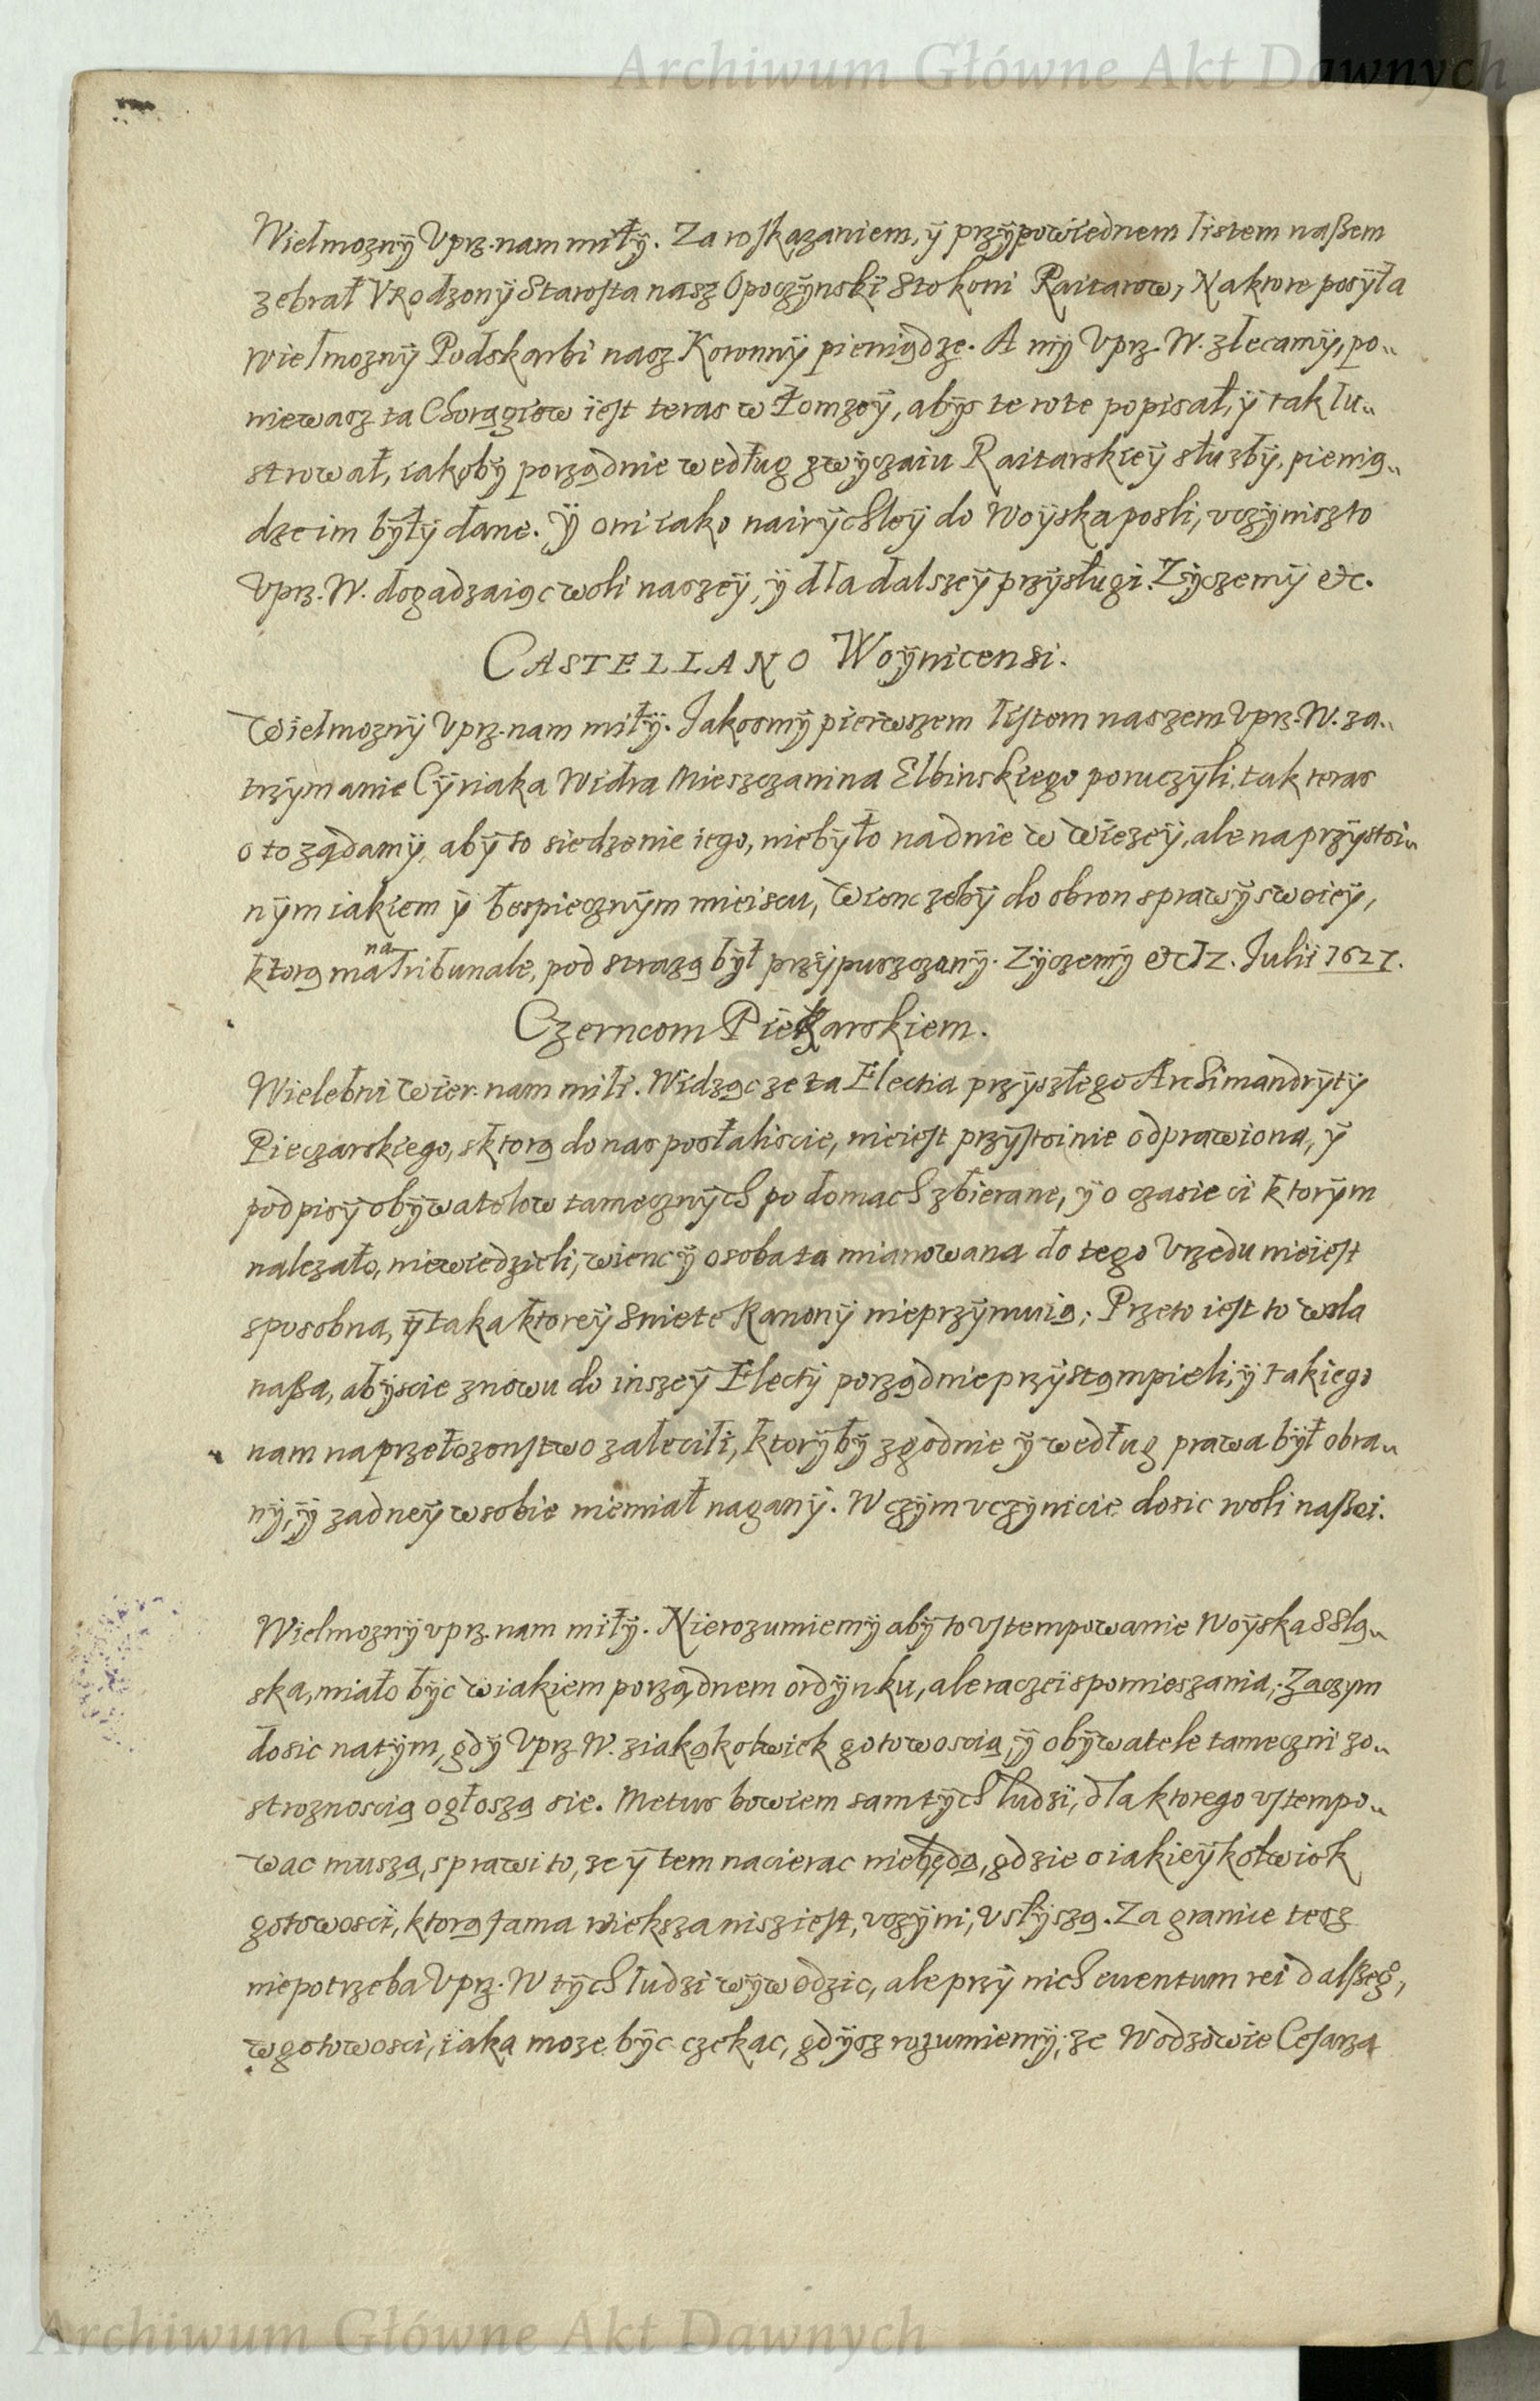 Archiwum Główne Akt Dawnych
Wielmoznÿ Vprz. nam miłÿ. Za roskązaniem, ÿ przÿpowiednem listem naßem
zebrał VRodzonÿ Starosta nasz Opoczÿnskÿ Sto koni Raitarow, Na ktore posÿła
wielmoznÿ Podskarbi nasz Koronnÿ pieniądze. A mÿ Vprz. W. zlecamÿ, po„
niewasz ta Chorągiew iest teras w Łomzeÿ, abÿs te rote popisał, ÿ tak lu„
strował, iakobÿ porządnie według zwÿczaiu Raitarskieÿ słuzbÿ, pienią„
dze im bÿłÿ dane. Ÿ oni iako nairÿchleÿ do Woÿska posli, vczÿnisz to
Vprz. W. dogadzaiąc woli naszeÿ, ÿ dla dalszeÿ przÿsługi. Zÿczemÿ etc.
CASTELLANO Woÿnicensi.
Wielmoznÿ Vprz. nam miłÿ. Jakosmÿ pierwszem listem naszem Vprz. W. za„
trzÿmanie Cÿriaka Widra Mieszczanina Elbinskiego poruczÿli, tak teras
o to ządamÿ, abÿ to siedzenie iego, niebÿło nadnie w Wiezeÿ, ale na przÿstoi„
nÿm iakiem ÿ bespiecznÿm mieiscu, Wienc zebÿ do obron sprawÿ swoieÿ,
ktorą ma na Tribunale, pod strazą bÿł przÿpuszczanÿ. Zÿczemÿ etc 12. Julii 1627.
Czerncom Pieczarskiem.
Wielebni wier. nam mili. Widząc ze ta Electia przÿszłego Archimandrÿtÿ
Pieczarskiego, sktorą do nas posłaliscie, nieiest przÿstoinie odprawiona, ÿ
podpisÿ obÿwatelow tamecznÿch po domach zbierane, ÿ o czasie ci ktorÿm
nalezało, niewiedzieli, wienc ÿ osoba ta mianowana do tego Vrzedu nieiest
sposobna, ÿ taka ktoreÿ Swiete Kanonÿ nieprzÿmuią; Przeto iest to wola
naßa, abÿscie znowu do inszeÿ Electÿ porządnie przÿstąmpieli, ÿ takiego
nam na przełozonstwo zalecili, ktorÿbÿ zgodnie ÿ według prawa bÿł obra„
nÿ, ÿ zadneÿ wsobie niemiał naganÿ. W czÿm vczÿnicie dosic woli naßei.
Wielmoznÿ vprz. nam miłÿ. Nierozumiemÿ abÿ to vstempowanie Woÿska Sslą„
ska, miało bÿc w iakiem porządnem ordÿnku, ale raczei spomieszania; Zaczym
dosic natÿm, gdÿ Vprz. W. ziakąkolwiek gotowoscią, ÿ obÿwatele tameczni zo„
stroznoscią ogłoszą sie. Metus bowiem sam tÿch ludzi, dla ktorego vstempo„
wac muszą, sprawi to, ze ÿ tem nacierac niebędą, gdzie o iakieÿkolwiek
gotowosci, ktorą fama wiekszą nisz iest, vczÿni, vsłÿszą. Za granice tesz
niepotrzeba Vprz. W tÿch ludzi wÿwodzic, ale przÿ nich euentum rei dalßeg,
w gotowosci, iaka moze bÿc czekac, gdÿsz rozumiemÿ, ze Wodzowie Cesarza
Archiwum Główne Akt Dawnych